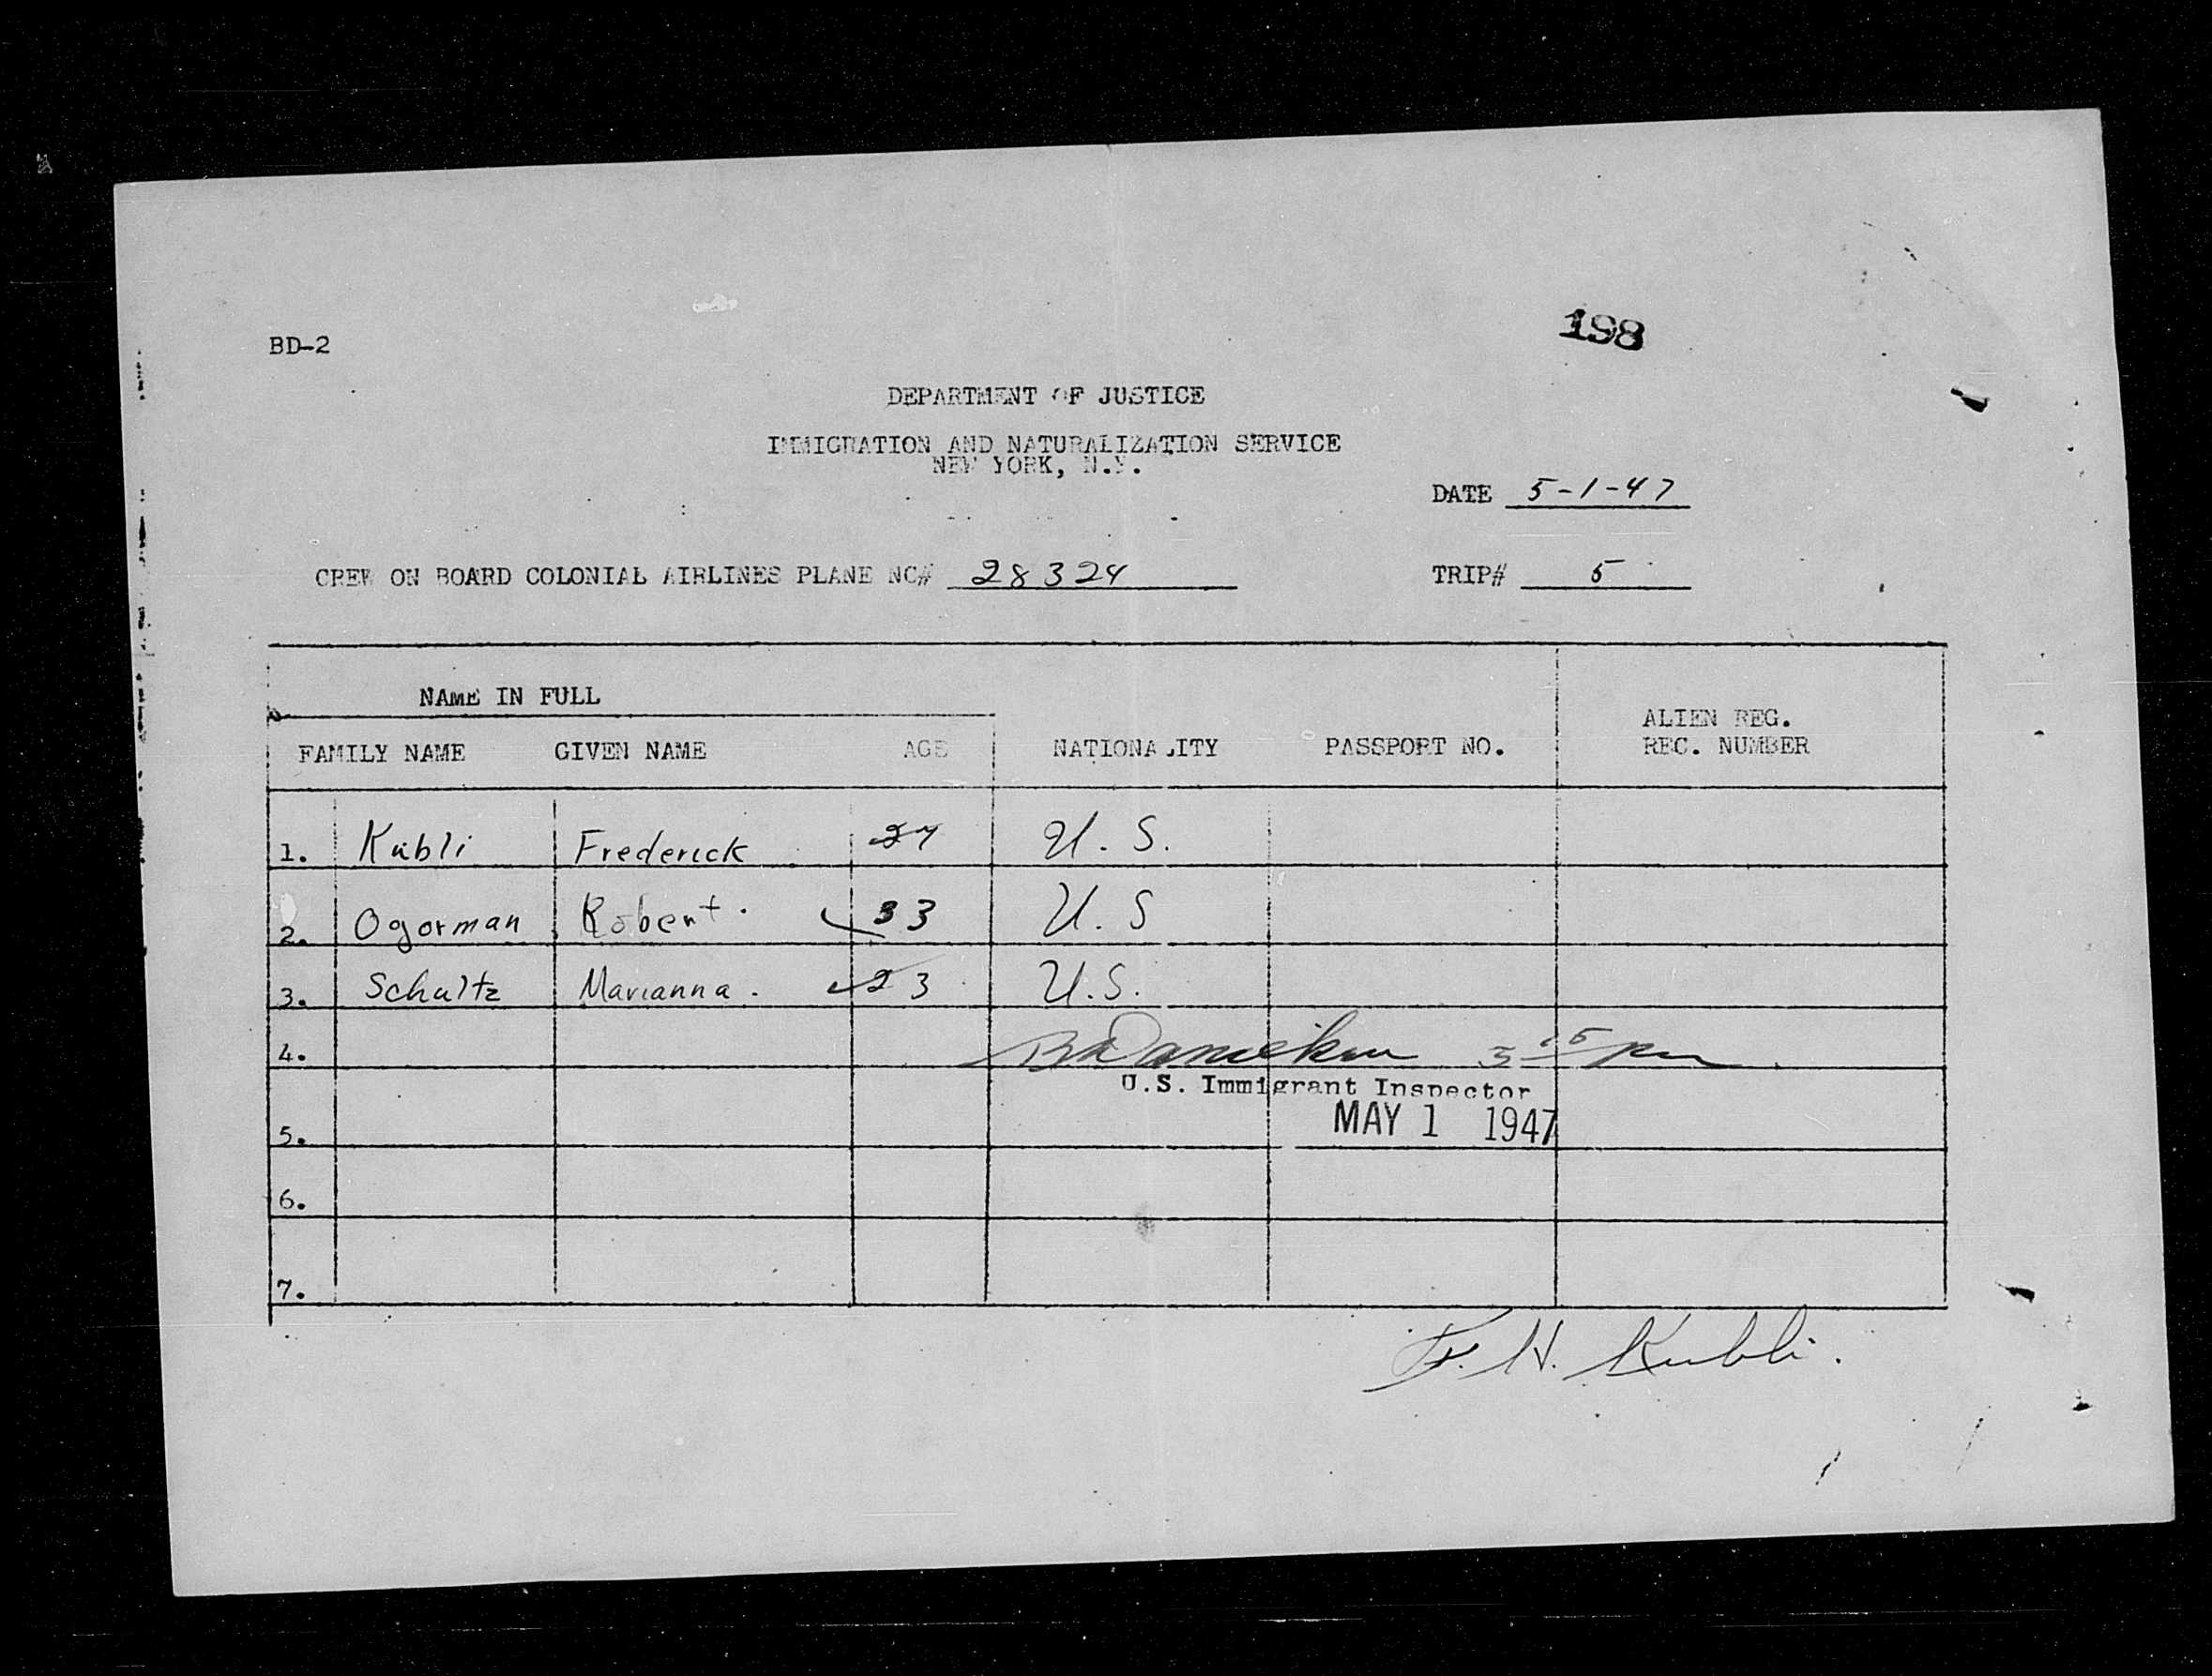 198
BD-2
DEPARTMENT OF JUSTICE
IMMIGRATION AND NATURALIZATION SERVICE
NEW YORK, N.Y.
DATE 5-1-47
CREW ON BOARD COLONIAL AIRLINES PLANE NC# 28324 TRIP# 5
NAME IN FULL
FAMILY NAME GIVEN NAME AGE NATIONALITY PASSPORT NO. ALIEN REG. REC. NUMBER
1. Kubli Frederick 27 U.S.
2. Ogorman Robert. 33 U.S
3. Schultz Marianna. 23 U.S.
4. pm
U.S. Immigrant Inspector
5. MAY 1 1947
6.
7.
F. H. Kubli.